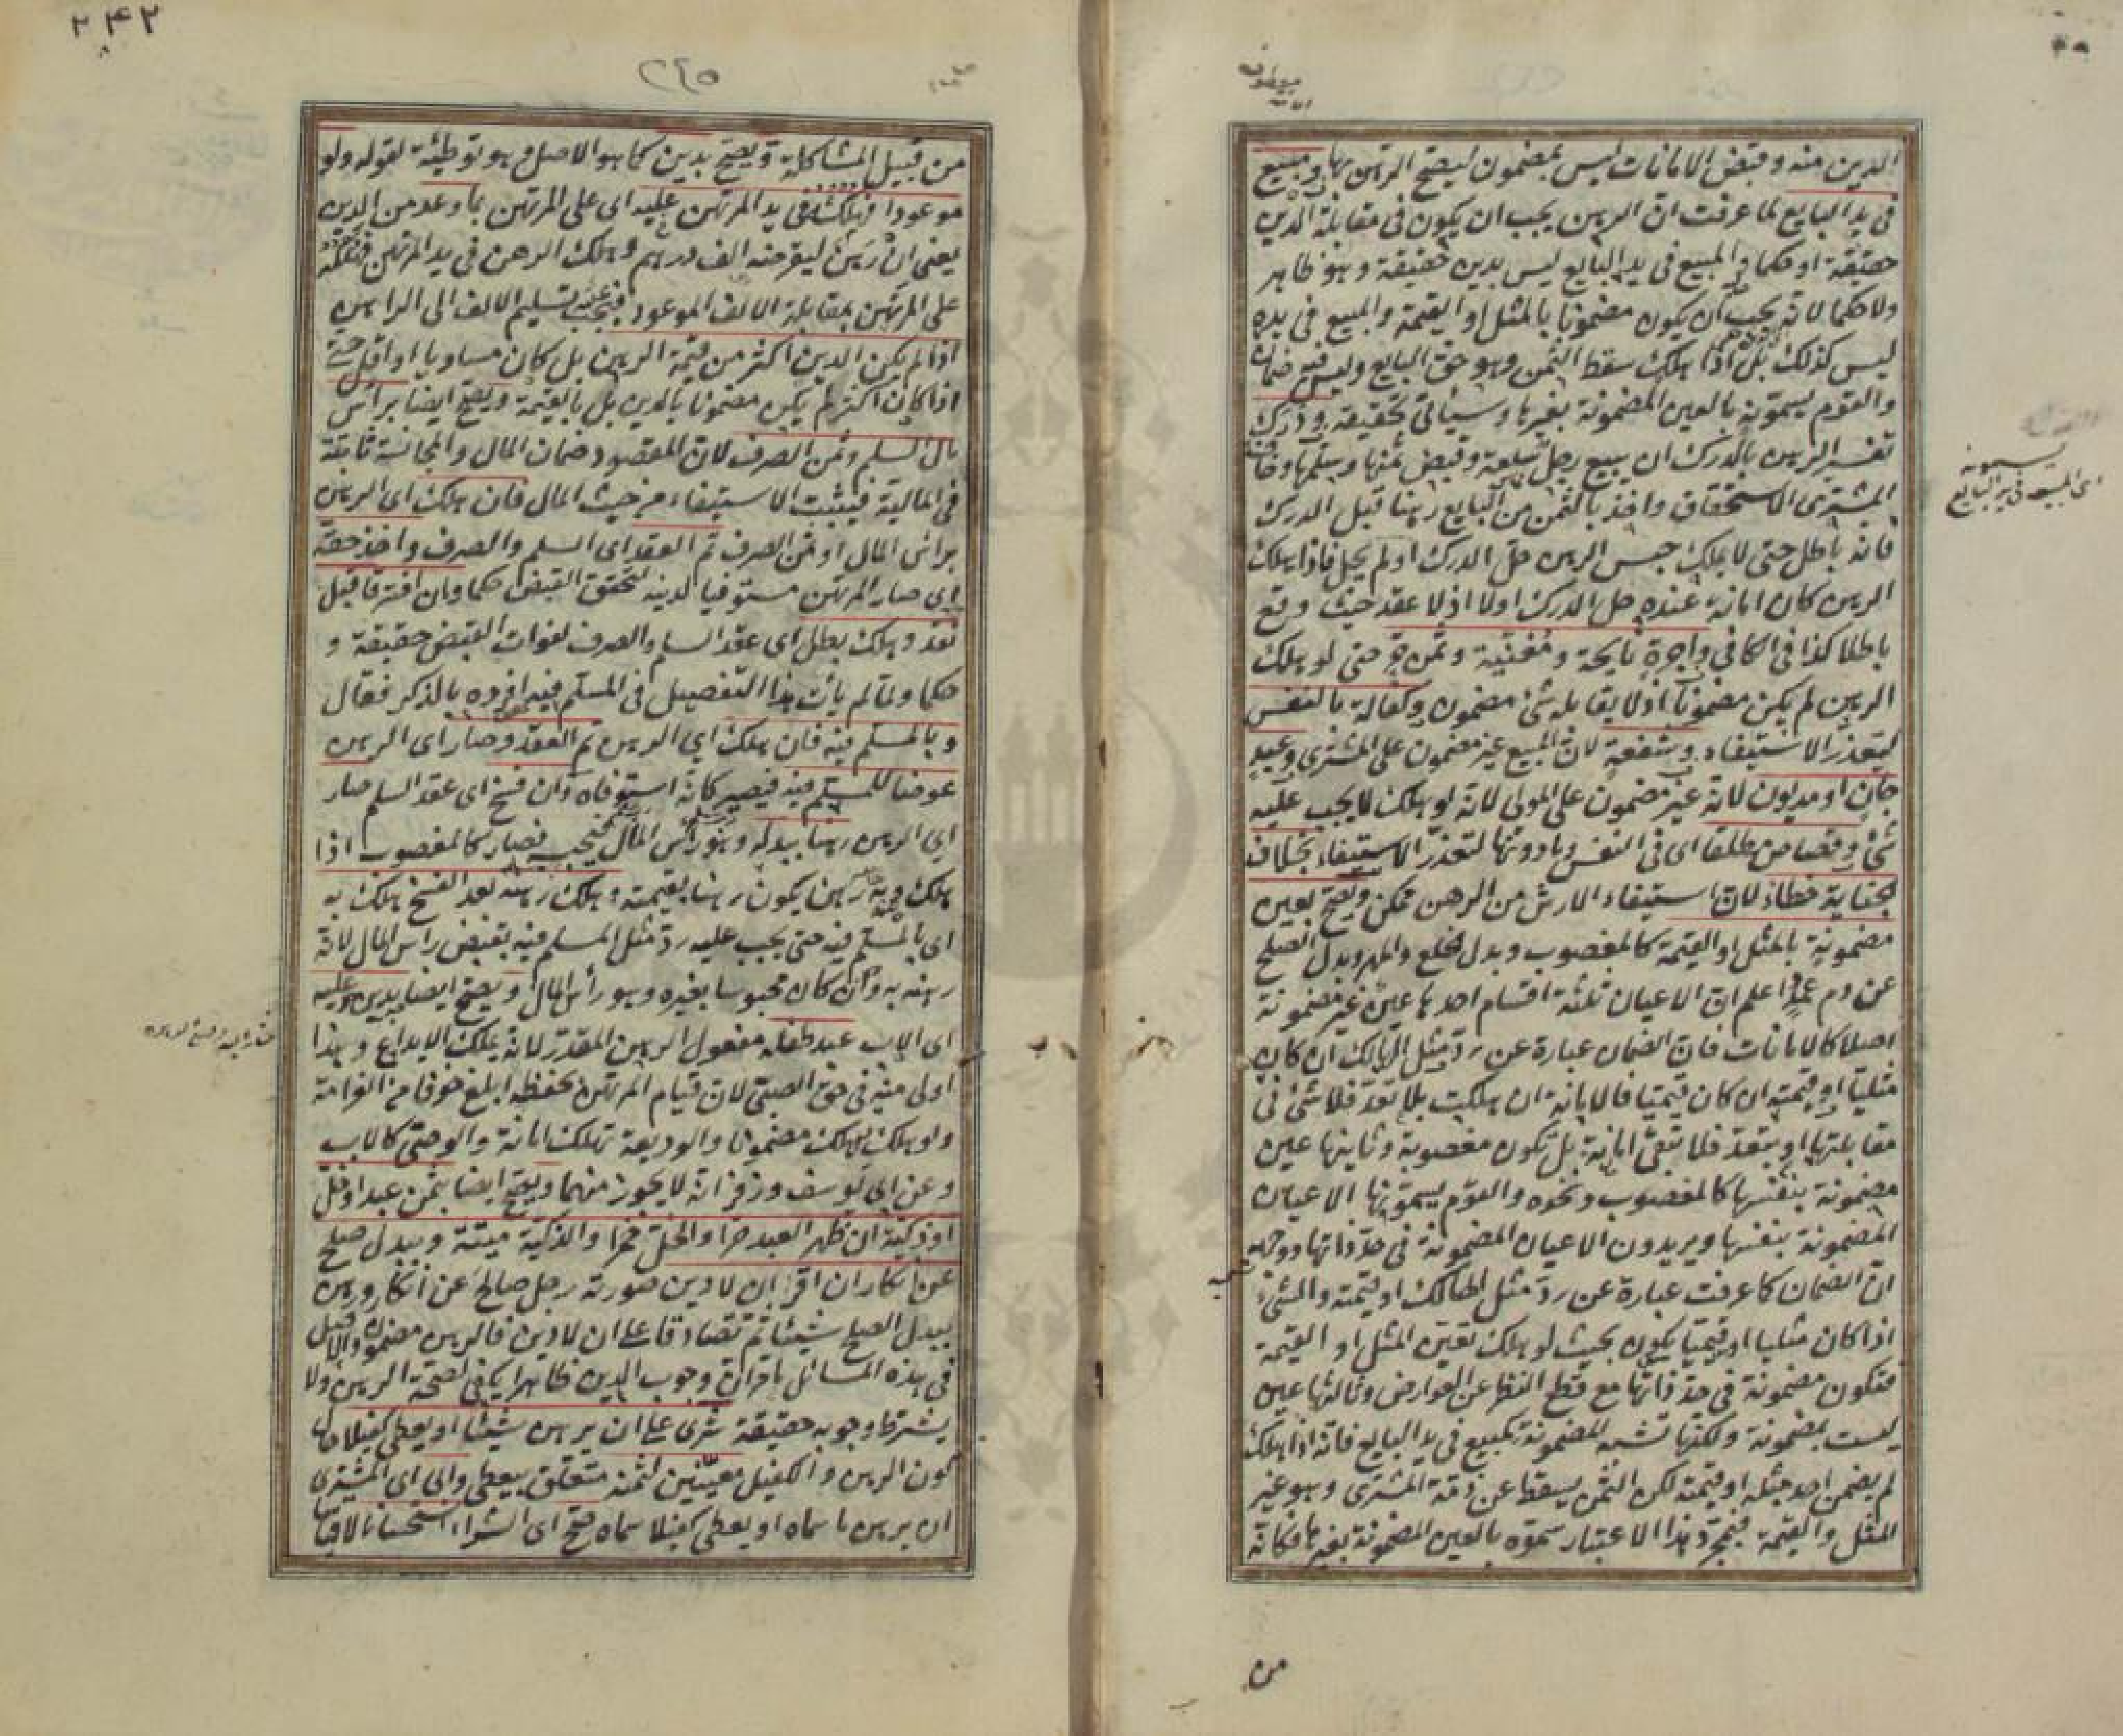 الدين منه وقبض الامانات ليس بمضمون ليصح الرهن بها ومبيع
في يد البايع لما عرفت ان الرهن يجب ان يكون في مقابلة الدين
حقيقة او حكما والمبيع في يد البايع ليس بدين حقيقة وهو ظاهر
ولا حكما لانه يجب ان يكون مضمونا بالمثل او القيمة والمبيع في يده
ليس كذلك بل اذا هلك سقط الثمن وهو حق البايع وليس فيه ضمان
والقوم يسمونه بالعين المضمونة بغيرها وسيأتي تحقيقه ودرك
تفسير الرهن بالدرك ان يبيع رجل سلعة وقبض ثمنها وسلمها وخاف
المشتري الاستحقاق واخذ بالثمن من البايع رهنا قبل الدرك
فانه باطل حتى لا يملك حبس الرهن حل الدرك او لم يحل فاذا هلك
الرهن كان امانة عنده حل الدرك اولا اذ لا عقد حيث وقع
باطلا كذا في الكافي واجرة نايحة ومغنية وثمن حر حتى لو هلك
الرهن لم يكن مضمونا اذ لا يقابله شئ مضمون وكفالة بالنفس
لتعذر الاستيفاء وشفعة لان المبيع غير مضمون على المشتري وعبد
جان او مديون لانه غير مضمون على المولى لانه لو هلك لا يجب عليه
شئ وقصاص مطلقا اى في النفس وما دونها لتعذر الاستيفاء بخلاف
الجناية خطاء لان استيفاء الارش من الرهن ممكن ويصح بعين
مضمونة بالمثل او القيمة كالمغصوب وبدل الخلع والمهر وبدل الصلح
عن دم عمد اعلم ان الاعيان ثلثة اقسام احدها عين غير مضمونة
اصلا كالامانات فان الضمان عبارة عن رد مثل الهالك ان كان
مثليا او قيمته ان كان قيميا فالامانة ان هلكت بلا تعد فلا شئ في
مقابلتها او بتعد فلا تبقى امانة بل تكون مغصوبة وثانيها عين
مضمونة بنفسها كالمغصوب ونحوه والقوم يسمونها الاعيان
المضمونة بنفسها ويريدون الاعيان المضمونة في حد ذاتها ووجهه
ان الضمان كما عرفت عبارة عن رد مثل الهالك او قيمته والشئ
اذا كان مثليا او قيميا يكون بحيث لو هلك تعين المثل او القيمة
فتكون مضمونة في حد ذاتها مع قطع النظر عن العوارض وثالثها عين
ليست بمضمونة ولكنها تشبه المضمونة كمبيع في يد البايع فانه اذا هلك
لم يضمن احد بمثله او قيمته لكن الثمن يسقط عن ذمة المشتري وهو غير
المثل والقيمة فبمجرد هذا الاعتبار سموه بالعين المضمونة بغيرها فكانه
من
٢٤٢
٢٤٥
من قبيل المشاكلة ويصح بدين كما هو الاصل وهو توطئة لقوله ولو
موعودا فهلكه في يد المرتهن عليه اى على المرتهن بما وعد من الدين
يعني ان رهن ليقرضه الف درهم وهلك الرهن في يد المرتهن
على المرتهن بمقابلة الالف الموعود فيجب تسليم الالف الى الراهن
اذا لم يكن الدين اكثر من قيمة الرهن بل كان مساويا او اقل حتى
اذا كان اكثر لم يكن مضمونا بالدين بل بالقيمة ويصح ايضا برأس
مال السلم وثمن الصرف لان المقصود ضمان المال والمجانسة ثابتة
في المالية فيثبت الاستيفاء من حيث المال فان هلك اى الرهن
برأس المال او ثمن الصرف تم العقد اى السلم والصرف واخذ حقه
اى صار المرتهن مستوفيا لدينه لتحقق القبض حكما وان افترقا قبل
نقد وهلك بطل اى عقد السلم والصرف لفوات القبض حقيقة و
حكما ولما لم يأت هذا التفصيل في المسلم فيه افرده بالذكر فقال
وبالمسلم فيه فان هلك اى الرهن تم العقد وصار اى الرهن
عوضا للمسلم فيه فيصير كانه استوفاه وان فسخ اى عقد السلم صار
اى الرهن رهنا ببدله وهو رأس المال فصار كالمغصوب اذا
هلك وبه رهن يكون رهنا بقيمته وهلك رهنه بعد الفسخ هلك به
اى بالمسلم فيه حتى يجب عليه رد مثل المسلم فيه بقبض رأس المال لانه
رهنه به وان كان محبوسا بغيره وهو رأس المال ويصح ايضا بدين عليه
اى الاب عبد طفله مفعول الرهن المقدر لانه يملك الايداع وهذا
اولى منه في حق الصبي لان قيام المرتهن بحفظه ابلغ خوفا من الغرامة
ولو هلك يهلك مضمونا والوديعة تهلك امانة والوصي كالاب
وعن ابي يوسف وزفر انه لا يجوز منهما ويصح ايضا بثمن عبد او خل
او ذكية ان ظهر العبد حرا والخل خمرا والذكية ميتة وببدل صلح
عن انكار ان اقر ان لا دين صورته رجل صالح عن انكار ورهن
ببدل الصلح شيئا ثم تصادقا على ان لا دين فالرهن مضمون والاصل
في هذه المسائل ما مر ان وجوب الدين ظاهرا يكفي لصحة الرهن ولا
يشترط وجوبه حقيقة شرى على ان يرهن شيئا او يعطي كفيلا حال
كون الرهن والكفيل معينين لثمنه متعلق بيعطي وابى اى المشتري
ان يرهن ما سماه او يعطي كفيلا سماه صح اى الشراء استحسانا لا قياسا